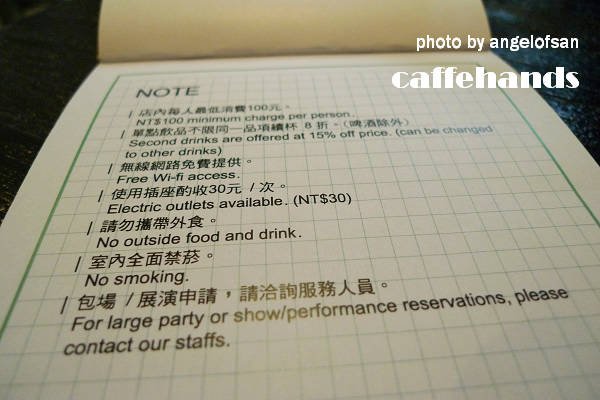 photo by angelofsan
caffehands
NOTE
| 店內每人最低消費100元。
NT$100 minimum charge per person.
| 單點飲品不限同一品項續杯 8 折。(啤酒除外)
Second drinks are offered at 15% off price. (can be changed
to other drinks)
| 無線網路免費提供。
Free Wi-fi access.
| 使用插座酌收30元 / 次。
Electric outlets available. (NT$30)
| 請勿攜帶外食。
No outside food and drink.
| 室內全面禁菸。
No smoking.
| 包場 / 展演申請，請洽詢服務人員。
For large party or show/performance reservations, please
contact our staffs.